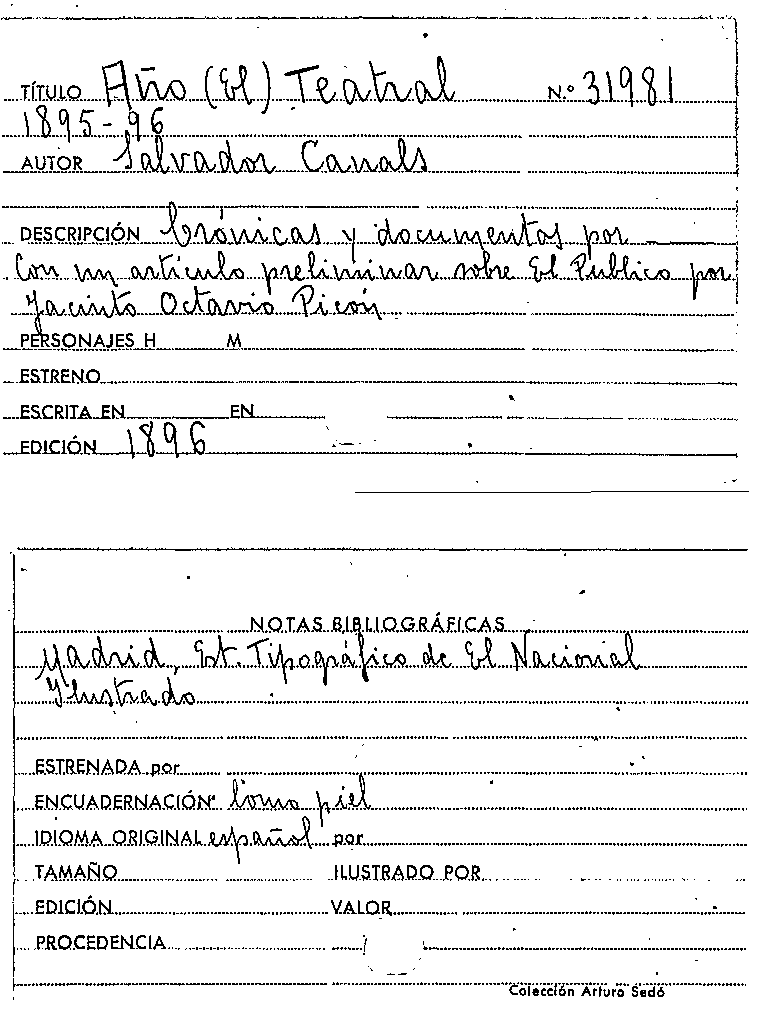 TÍTULO Año (El) Teatral N.º 31981
1895-96
AUTOR Salvador Canals
DESCRIPCIÓN Crónicas y documentos por ———
Con un artículo preliminar sobre El Público por
Jacinto Octavio Picón
PERSONAJES H M
ESTRENO
ESCRITA EN EN
EDICIÓN 1896
NOTAS BIBLIOGRÁFICAS
Madrid, Est. Tipográfico de El Nacional
Ilustrado
ESTRENADA por
ENCUADERNACIÓN lomo piel
IDIOMA ORIGINAL español por
TAMAÑO ILUSTRADO POR
EDICIÓN VALOR
PROCEDENCIA
Colección Arturo Sedó